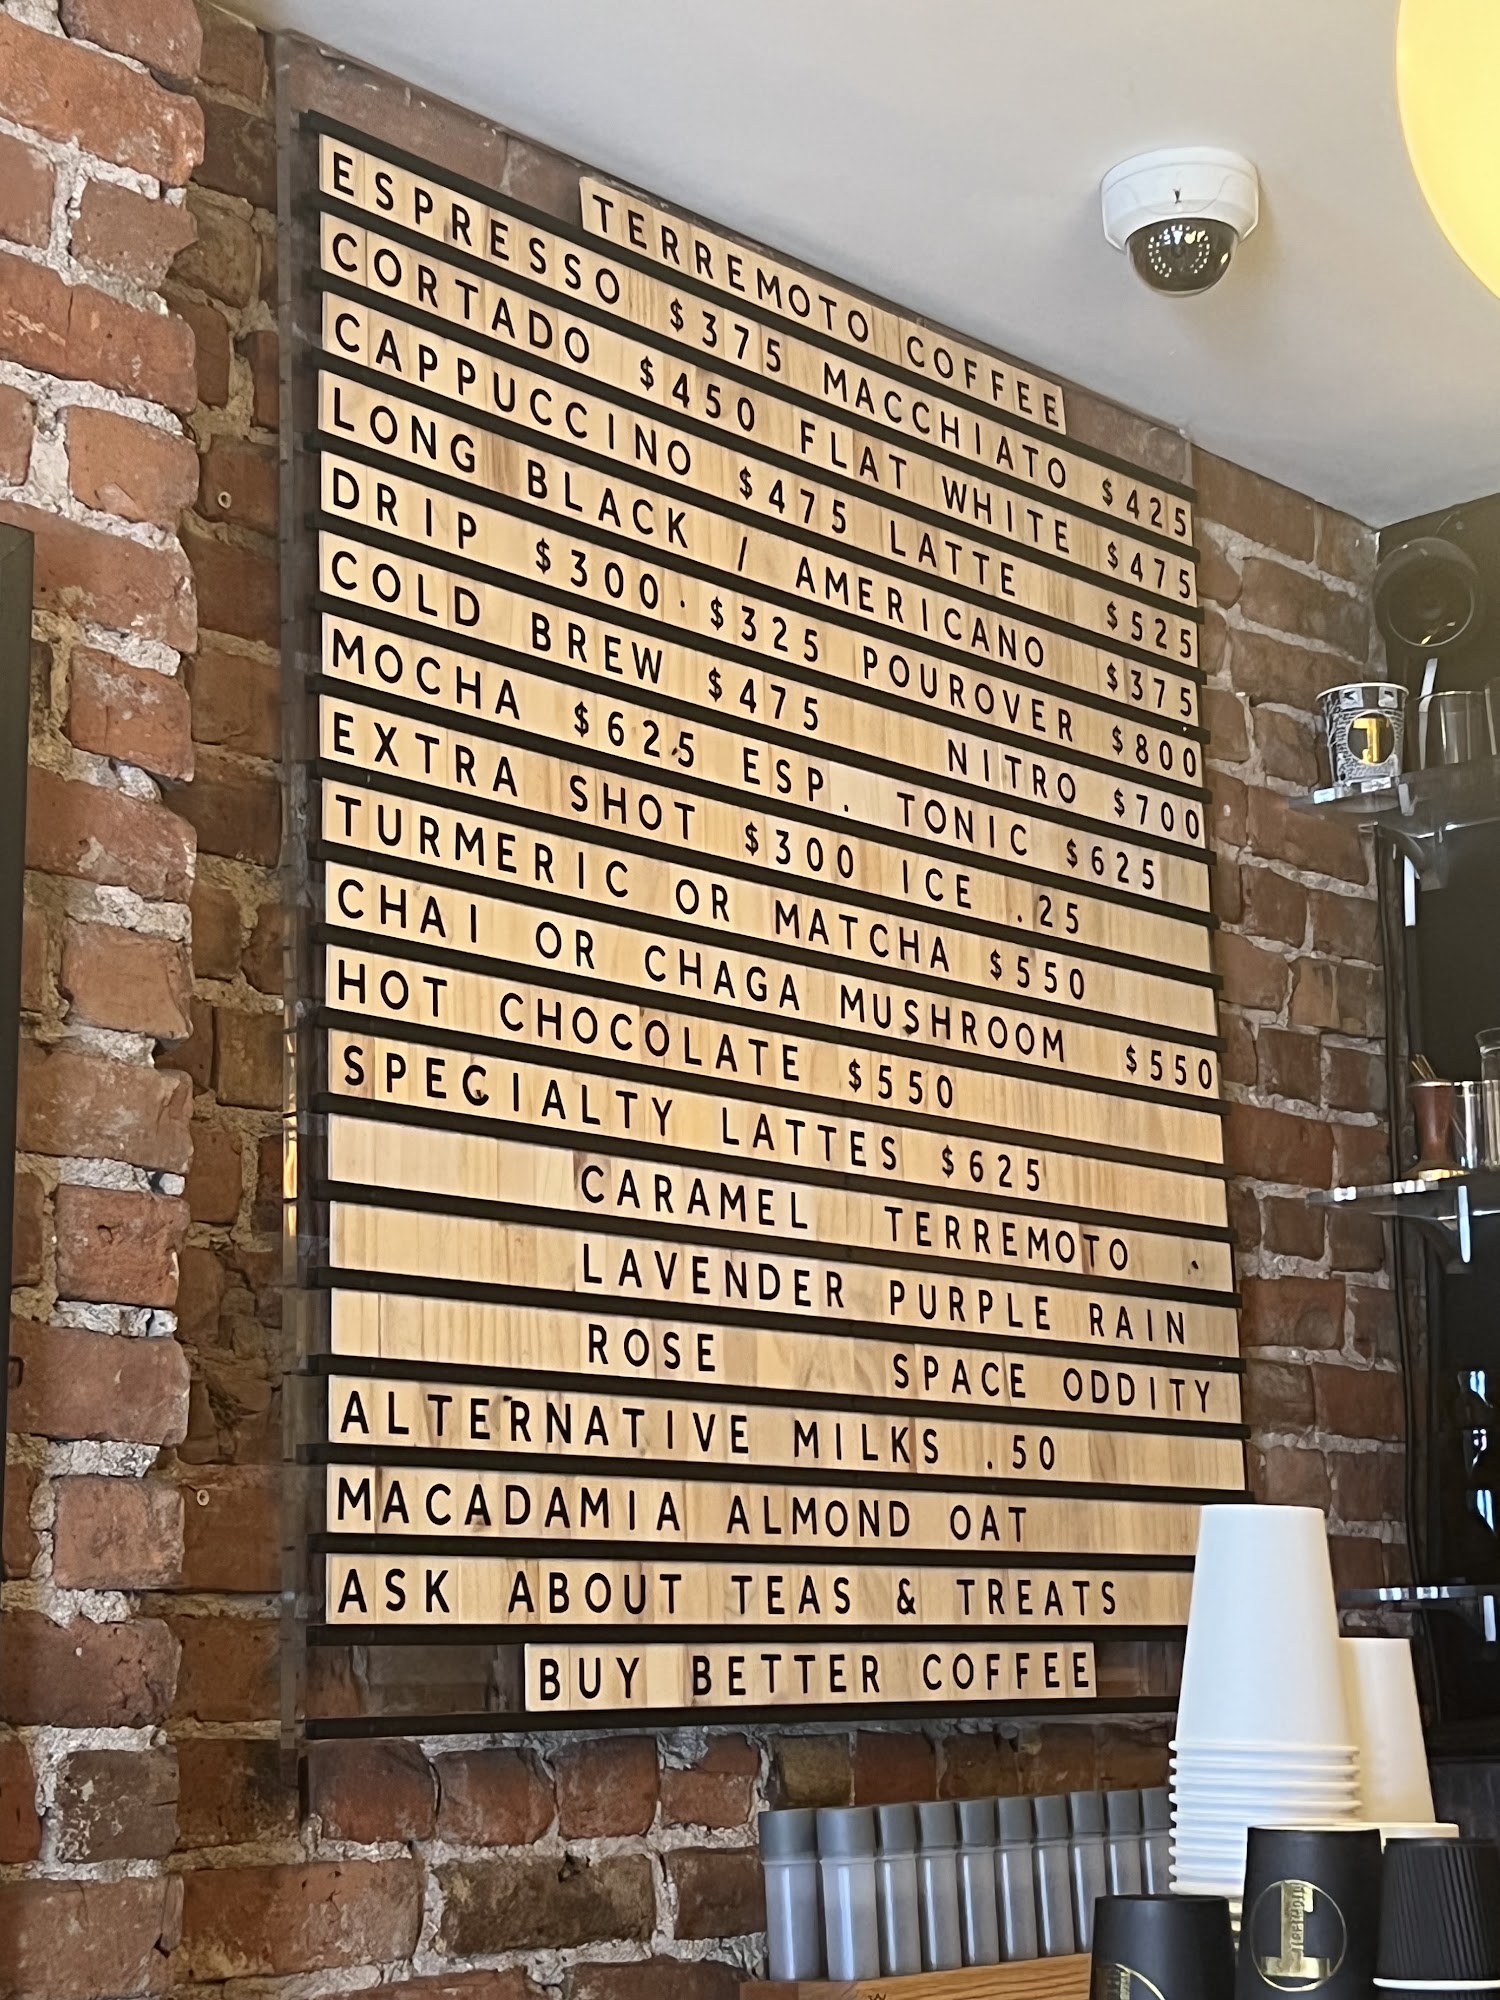 TERREMOTO COFFEE
ESPRESSO $375 MACCHIATO $425
CORTADO $450 FLAT WHITE $475
CAPPUCCINO $475 LATTE $525
LONG BLACK / AMERICANO $375
DRIP $300·$325 POUROVER $800
COLD BREW $475 NITRO $700
MOCHA $625 ESP. TONIC $625
EXTRA SHOT $300 ICE .25
TURMERIC OR MATCHA $550
CHAI OR CHAGA MUSHROOM $550
HOT CHOCOLATE $550
SPECIALTY LATTES $625
CARAMEL TERREMOTO
LAVENDER PURPLE RAIN
ROSE SPACE ODDITY
ALTERNATIVE MILKS .50
MACADAMIA ALMOND OAT
ASK ABOUT TEAS & TREATS
BUY BETTER COFFEE